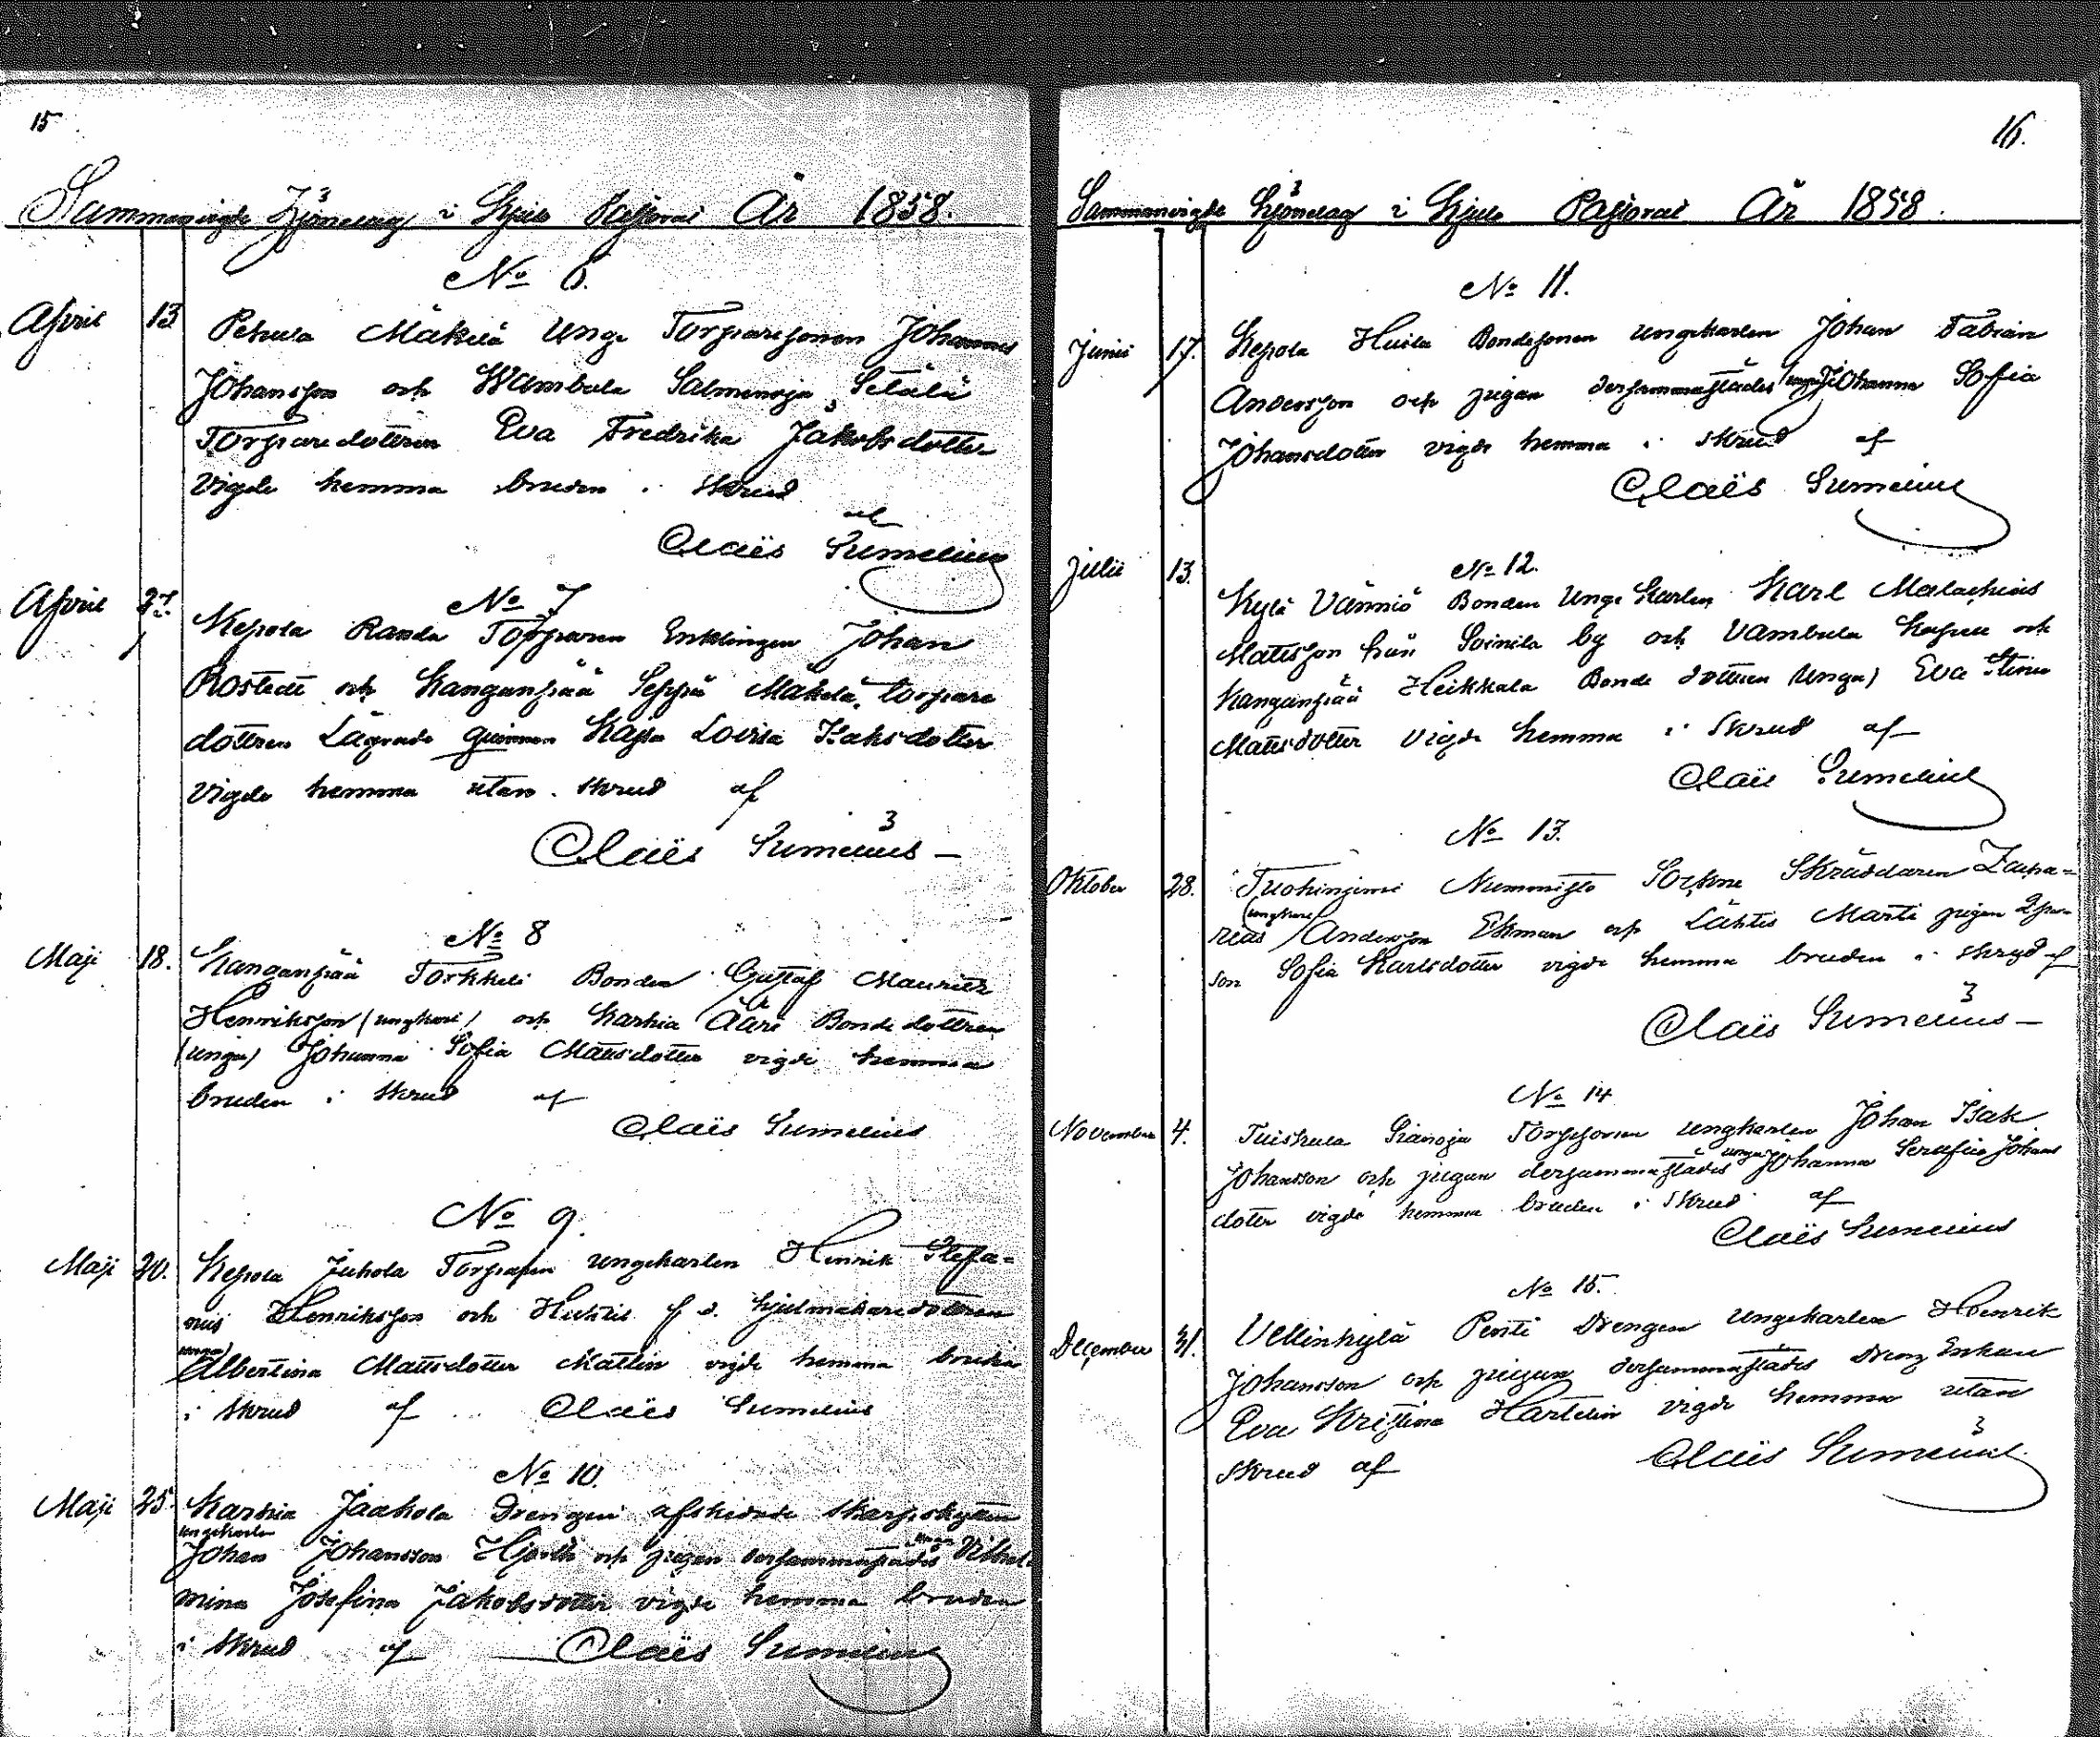 15
Sammanvigde Hjonelag i Kjulo Pastorat År 1858.
No 6.
April 13 Pehula Mäkelä Unge Torparesonen Johannes
Johansson och Wambula Salmenoja Sëtälä
Torparedottren Eva Fredrika Jakobsdotter
vigde hemma bruden i skrud
af
Claës Sumelius
No 7
April 27. Kepola Randa Torparen Enklingen Johan
Rostedt och Kanganpää Seppä Mäkelä torpare
dottren Lägrade qvinnan Kajsa Lovisa Isaksdotter
vigde hemma utan skrud af
Claës Sumelius
No 8
Maji 18. Kanganpää Torkkeli Bonden Gustaf Mauritz
Henriksson (ungkarl) och Karhia Ääri Bonde dottren
(unga) Johanna Sofia Mattsdotter vigde hemma
bruden i skrud af
Claës Sumelius
No 9.
Maji 20. Kepola Juhola Torparen ungekarlen Henrik Stefa-
nus Henriksson och Huhtis f d. hjulmakaredottren
unga
Albertina Mattsdotter Mattlin vigde hemma bruden
i skrud af Claës Sumelius
No 10.
Maji 25. Karhia Jaakola Drengen afskedade skarpskytten
ungekarlen
Johan Johansson Hjorth och pigan dersammastädes unga Vilhel-
mina Josefina Jakobsdotter vigde hemma bruden
i skrud af Claës Sumelius
16.
Sammanvigde Hjonelag i Kjulo Pastorat År 1858.
No 11.
Junii 17. Kepola Huila Bondesonen ungekarlen Johan Fabian
Andersson och pigan dersammastädes unga Johanna Sofia
Johansdotter vigde hemma i skrud af
Claës Sumelius
No 12.
Julii 13. Kylä Vänniö Bonden Unge Karlen Karl Malachias
Mattsson från Soinila by och Vambula Kapell och
Kanganpää Heikkala Bonde dottren (unga) Eva Stina
Mattsdotter vigde hemma i skrud af
Claës Sumelius
No 13.
Oktober 28. Tuohiniemi Nummisto Sockne Skräddaren Zacha-
(ungkarl)
rias Andersson Ekman och Lähtis Martti pigan
Sofia Karlsdotter vigde hemma bruden i skrud af
Claës Sumelius
No 14
November 4. Tuiskula Torpsonen ungkarlen Johan Isak
Johansson och pigan dersammastädes unga Johanna Serafia Johans
dotter vigde hemma bruden i skrud af
Claës Sumelius
No 15.
December 31. Vellinkylä Pentti Drengen ungekarlen Henrik
Johansson och pigan dersammastädes Dreng Enkan
Eva Kristina Hartelin vigde hemma utan
skrud af Claës Sumelius